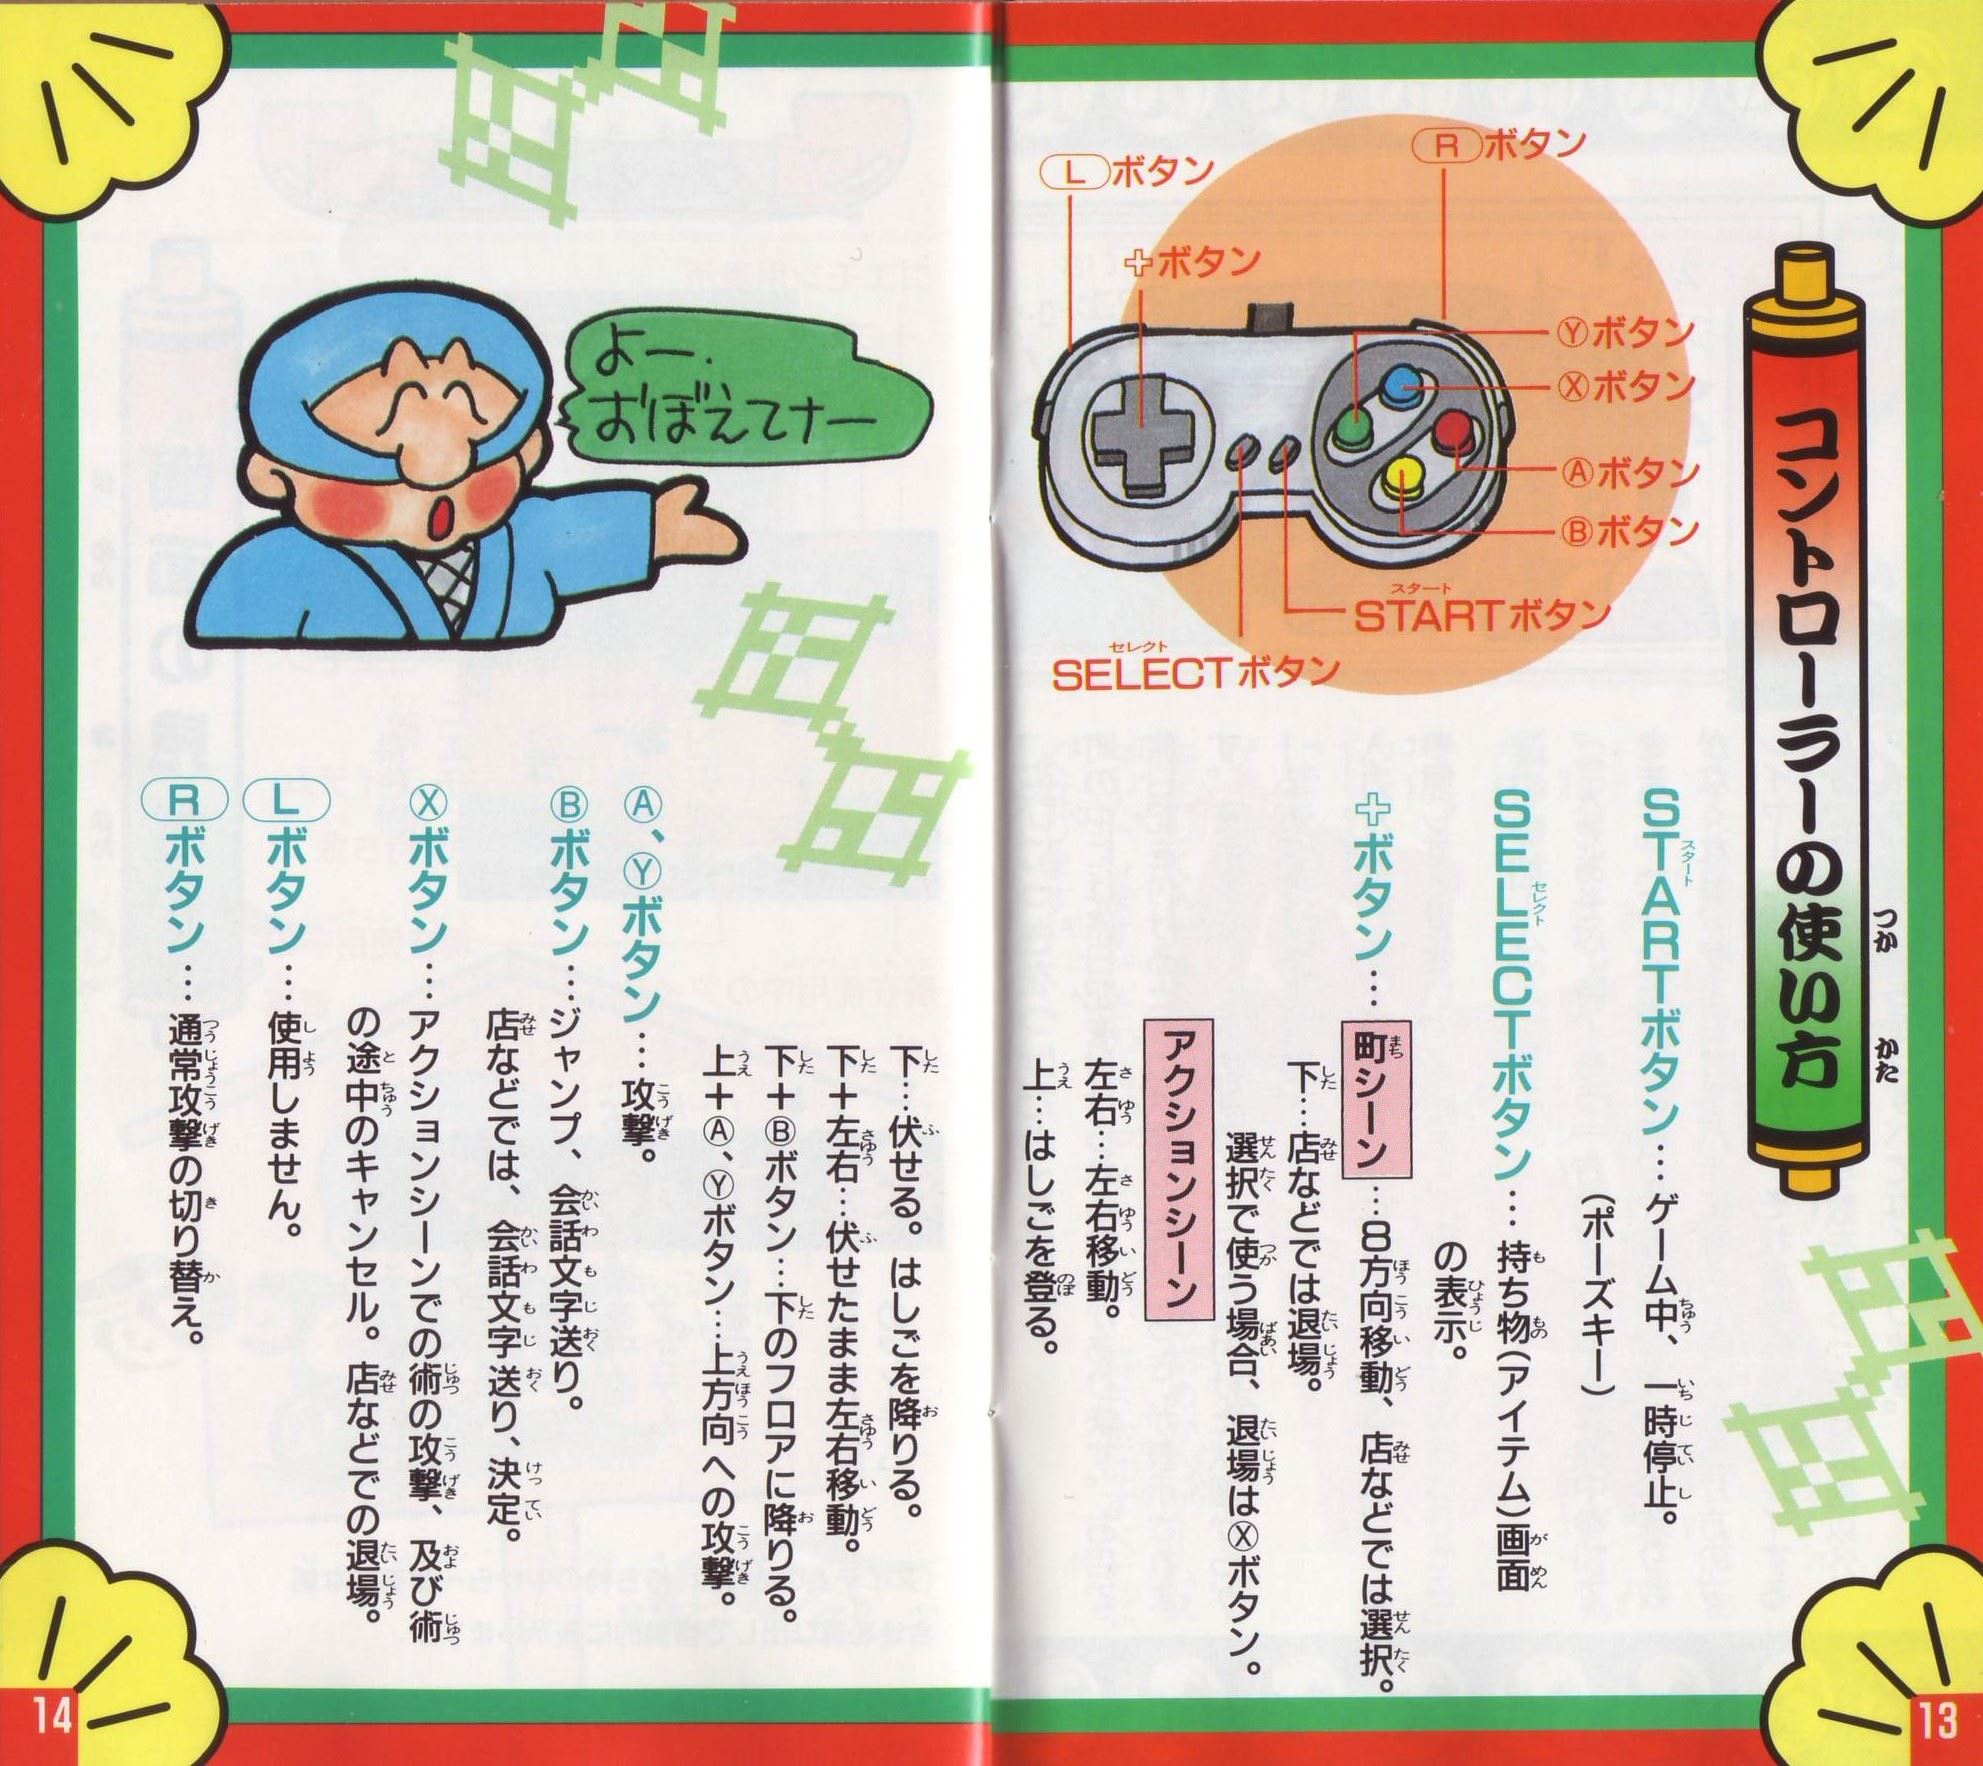 コントローラーの使い方
つか
かた
Lボタン
Rボタン
+ボタン
Yボタン
Xボタン
Aボタン
Bボタン
スタート
STARTボタン
セレクト
SELECTボタン
STARTボタン…ゲーム中、一時停止。
(ポーズキー)
SELECTボタン…持ち物(アイテム)画面
の表示。
+ボタン…町シーン…8方向移動、店などでは選択。
下…店などでは退場。
選択で使う場合、退場はⓍボタン。
アクションシーン
左右…左右移動。
上…はしごを登る。
13
よー.
おぼえてナー
下…伏せる。はしごを降りる。
下+左右…伏せたまま左右移動。
下+Ⓑボタン…下のフロアに降りる。
上+Ⓐ、Ⓨボタン…上方向への攻撃。
Ⓐ、Ⓨボタン…攻撃。
Ⓑボタン…ジャンプ、会話文字送り。
店などでは、会話文字送り、決定。
Ⓧボタン…アクションシーンでの術の攻撃、及び術
の途中のキャンセル。店などでの退場。
Lボタン…使用しません。
Rボタン…通常攻撃の切り替え。
14